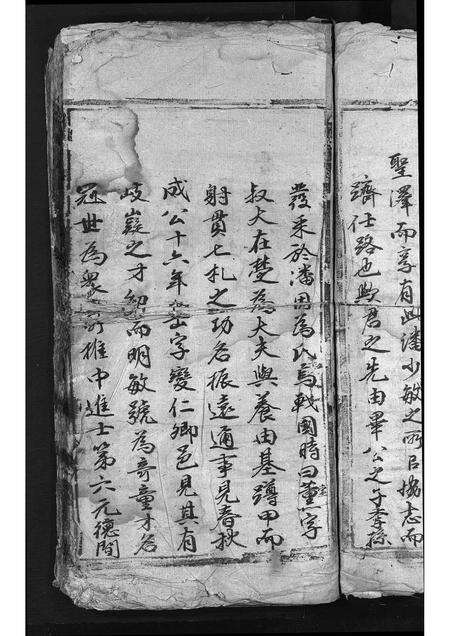 聖澤而享有此潘少敏之所以揚志而
躋仕路也與君之先由畢公之子季孫
發采於潘因為氏焉戰國時曰黨字
叔大在楚為大夫與養由基蹲甲而
射貫七札之功名振遠通事見春秋
成公十六年 字變仁卿邑見其有
岐嶷之才幼而明敏號為奇童才名
冠世為眾所推中進士第六元德間